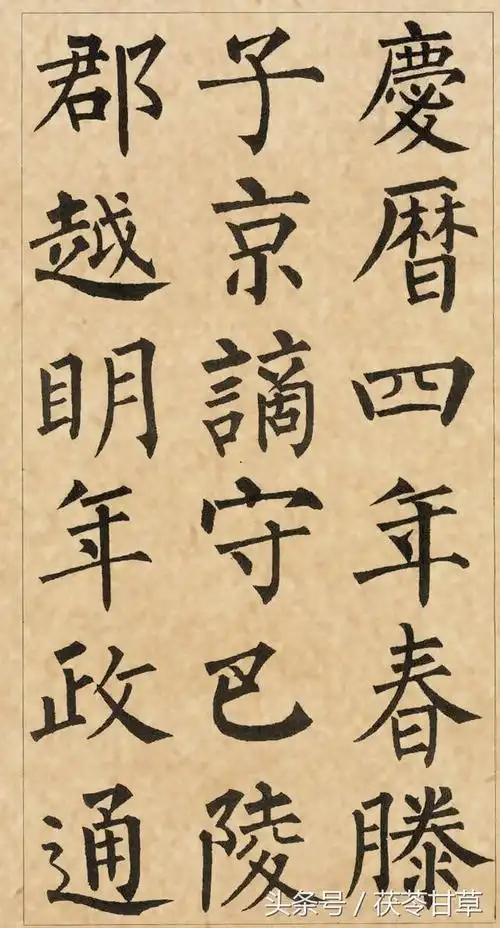 慶曆四年春滕
子京謫守巴陵
郡越明年政通
头条号／茯苓甘草